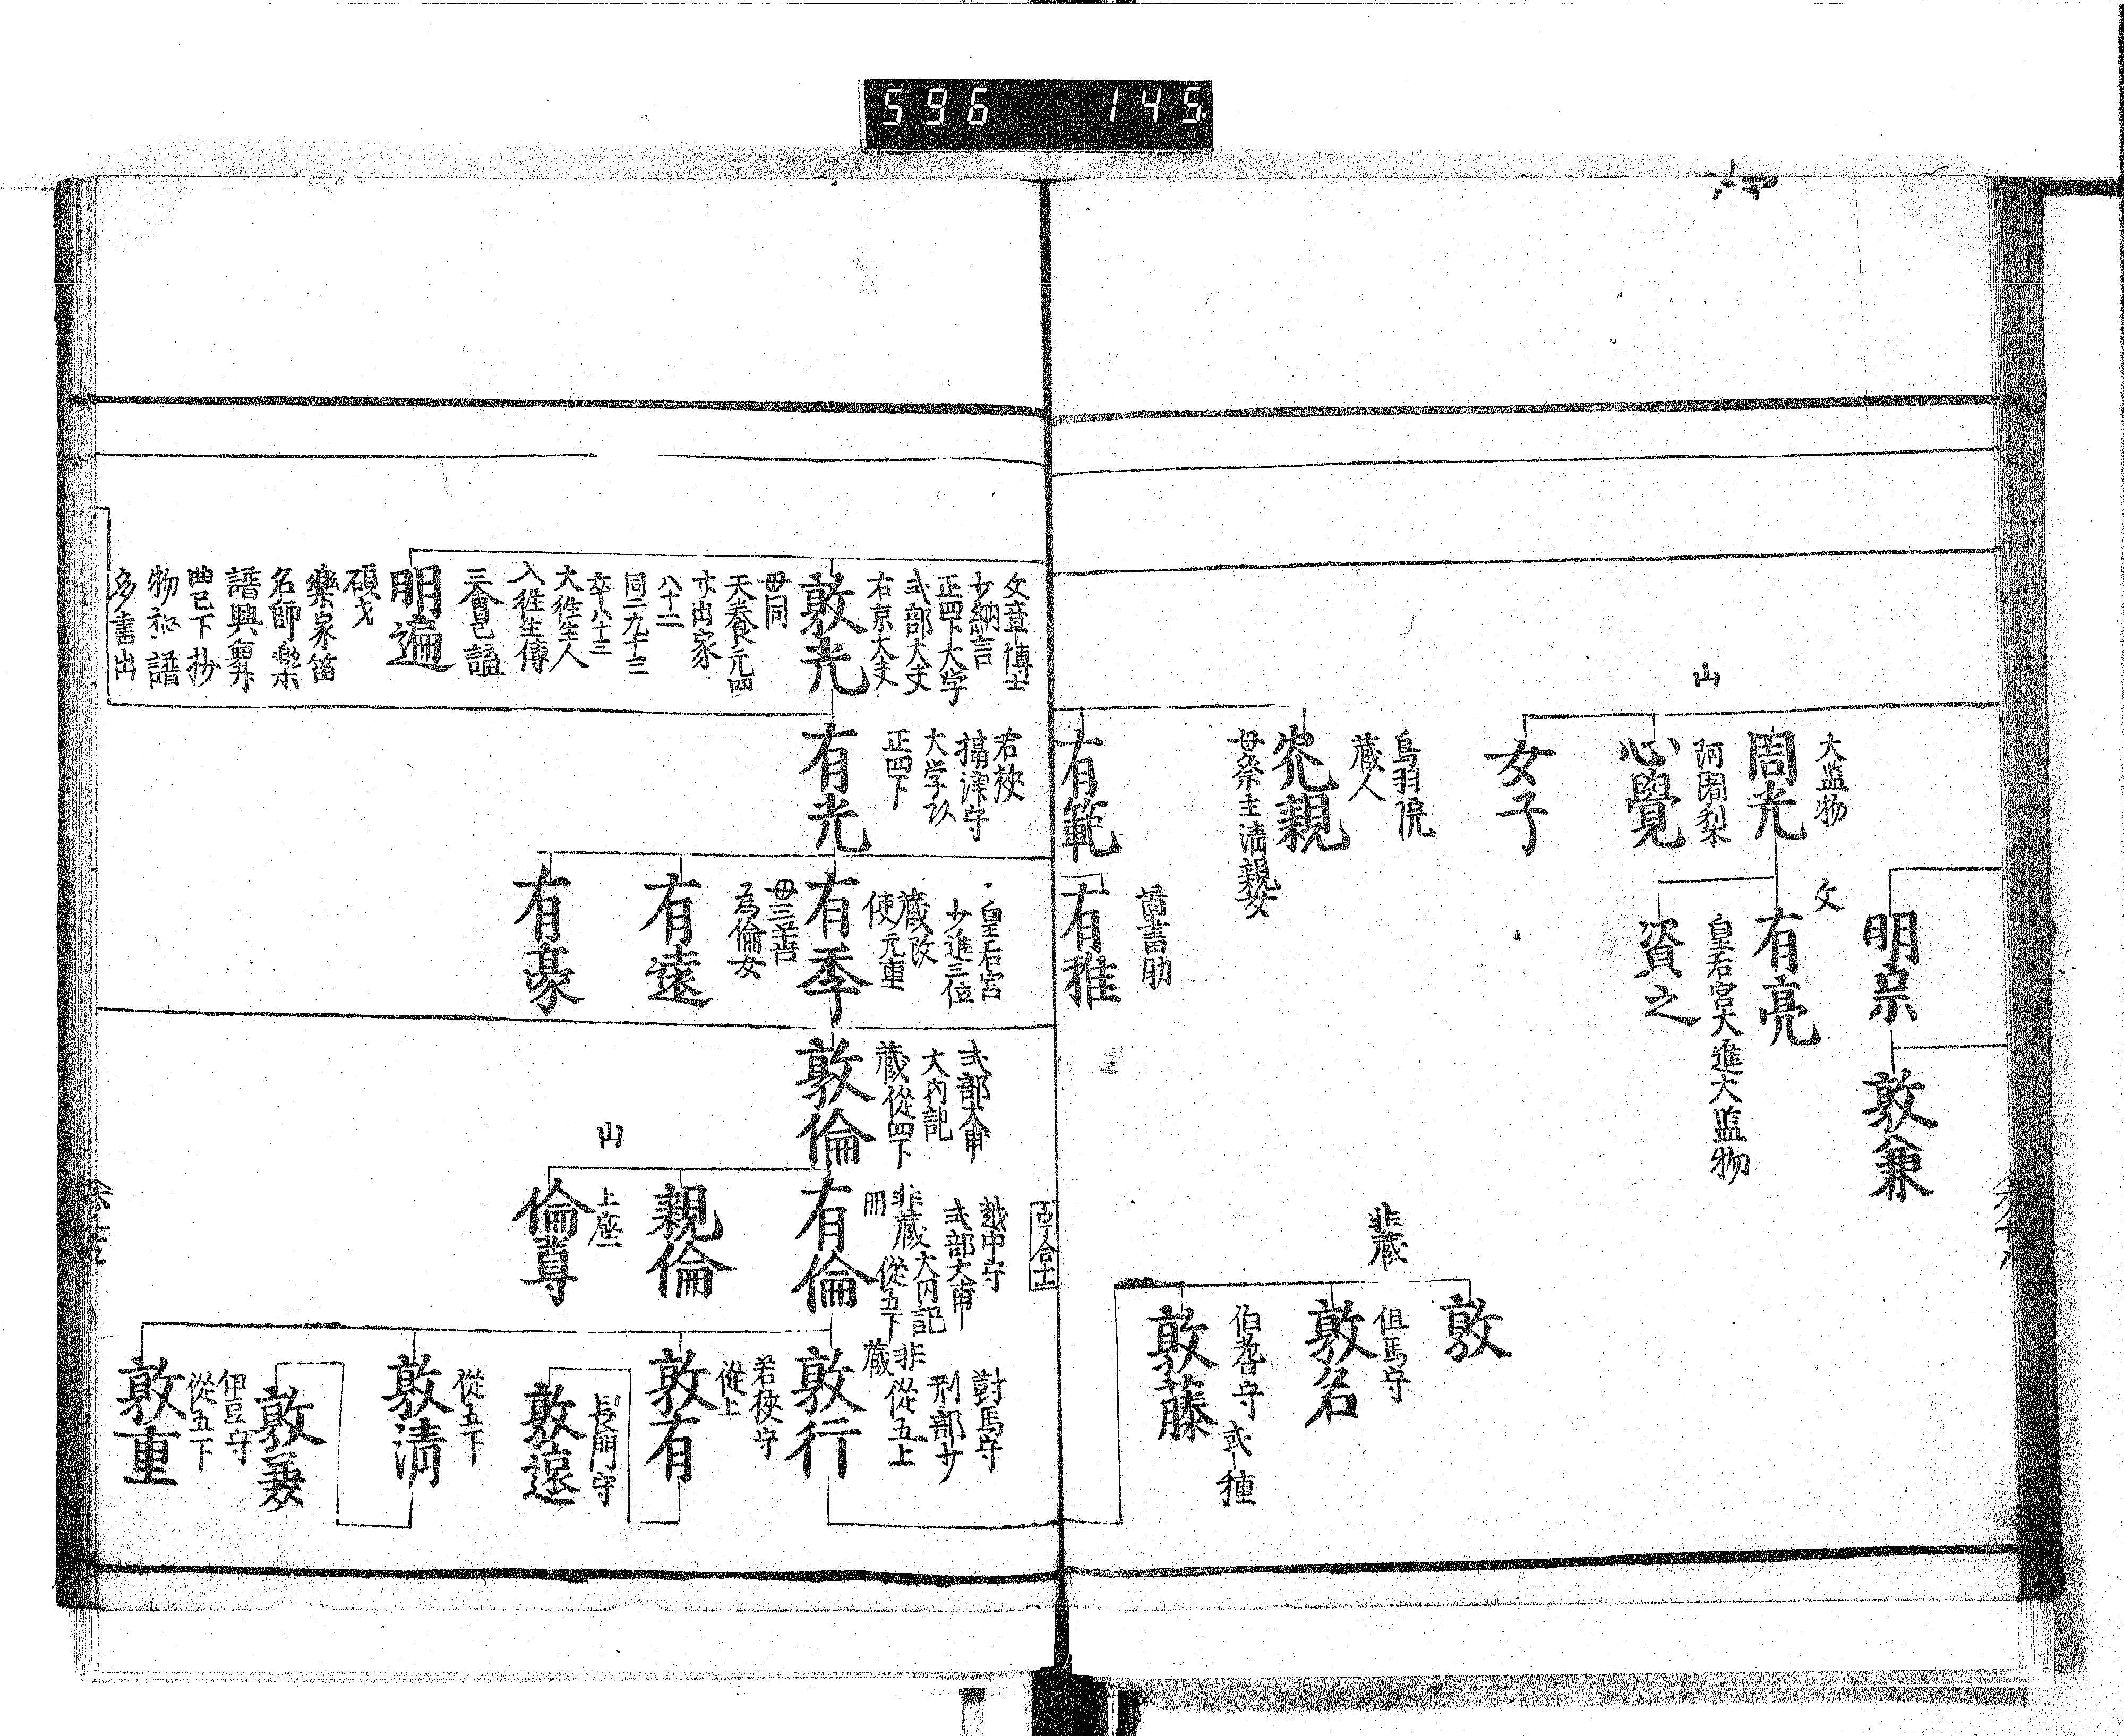 596 145
明宗
敦兼
大監物
周光
文
有亮
皇后宮大進大監物
資之
山
阿闍梨
心覺
女子
鳥羽院
藏人
光親
母祭主清親女
有範
圖書助
有雅
非藏
敦
但馬守
敦名
伯耆守 或種
敦藤
文章博士
少納言
正四下大学
式部大夫
右京大夫
敦光
母同
天養元四
廿出家
八十二
同二九十三
卒八十三
大往生人
入往生傳
三會已講
明遍
碩才
樂家笛
名師樂
譜興
曲已下抄
物私譜
多書出
若狹
攝津守
大学以
正四下
有光
皇后宮
少進三位
藏改
使元重
有季
母三善
為倫女
有遠
有豪
式部大甫
大内記
藏從四下
敦倫
越中守
式部大甫
非藏大内記
冊從五下
有倫
親倫
山
上座
倫尊
對馬守
刑部少
非從五上
藏
敦行
若狹守
從上
敦有
長門守
敦遠
從五下
敦清
敦兼
伊豆守
從五下
敦重